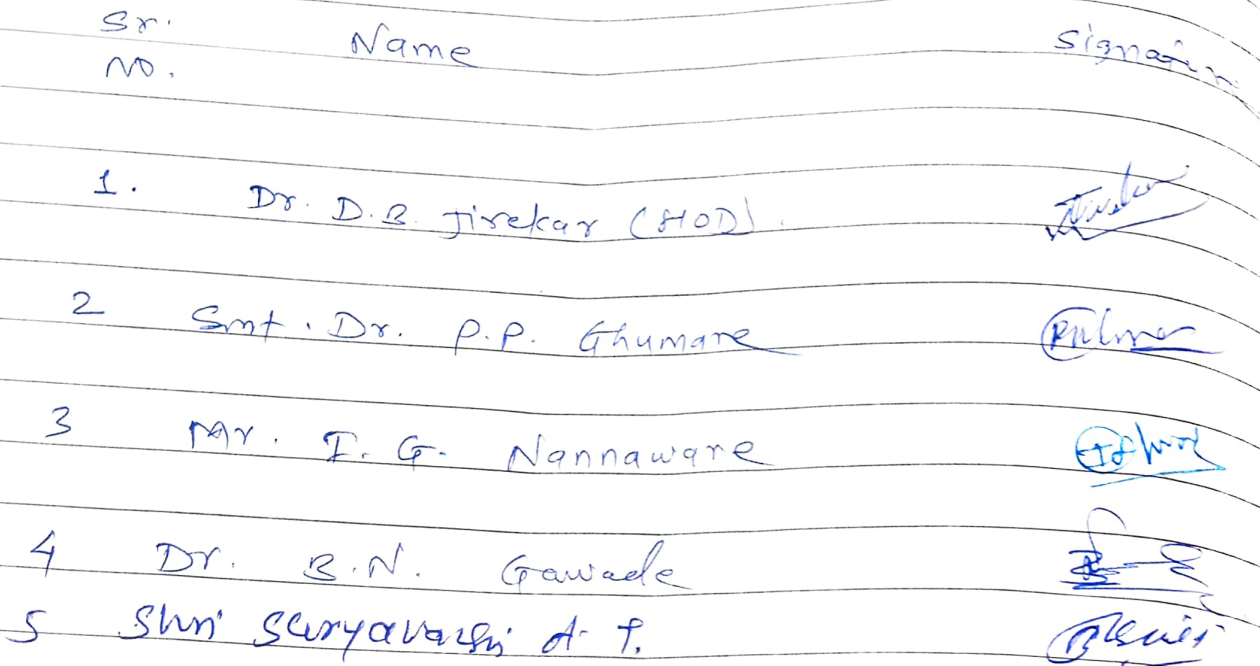 Sr. No. Name Signature
1. Dr. D.B. Jirekar (HOD).
2 Smt. Dr. P.P. Ghumare
3 Mr. I. G. Nannaware
4 Dr. B.N. Gawade
5 Shri Suryavanshi A. P.